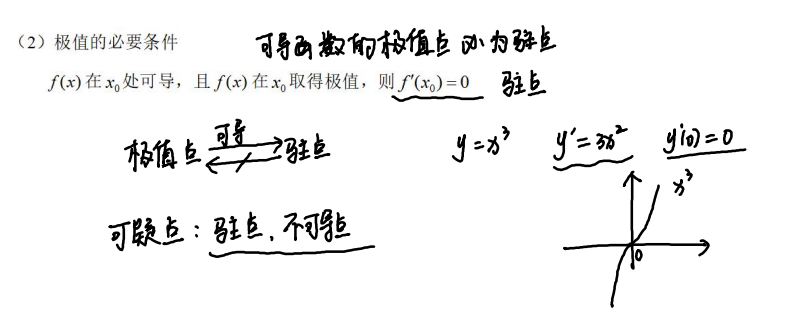 （2）极值的必要条件 可导函数的极值点必为驻点
f(x)在x₀处可导，且f(x)在x₀取得极值，则f′(x₀)=0 驻点
极值点 可导 驻点 y=x³ y′=3x² y′(0)=0
x³
可疑点：驻点、不可导点
0